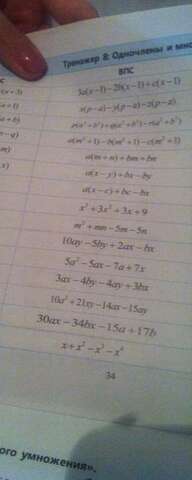 Тренажёр 8: Одночлены и мно
ВПС
3a(x−1)−2b(x−1)+c(x−1)
x(p−a)−y(p−a)−z(p−a)
p(a²+b²)+q(a²+b²)−r(a²+b²)
a(m²+1)−b(m²+1)−c(m²+1)
a(m+n)+bm+bn
a(x−y)+bx−by
a(x−c)+bc−bx
x³+3x²+3x+9
m²+mn−5m−5n
10ay−5by+2ax−bx
5a²−5ax−7a+7x
3ax−4by−4ay+3bx
10a²+21xy−14ax−15ay
30ax−34bx−15a+17b
x+x²−x³−x⁴
34
ого умножения».